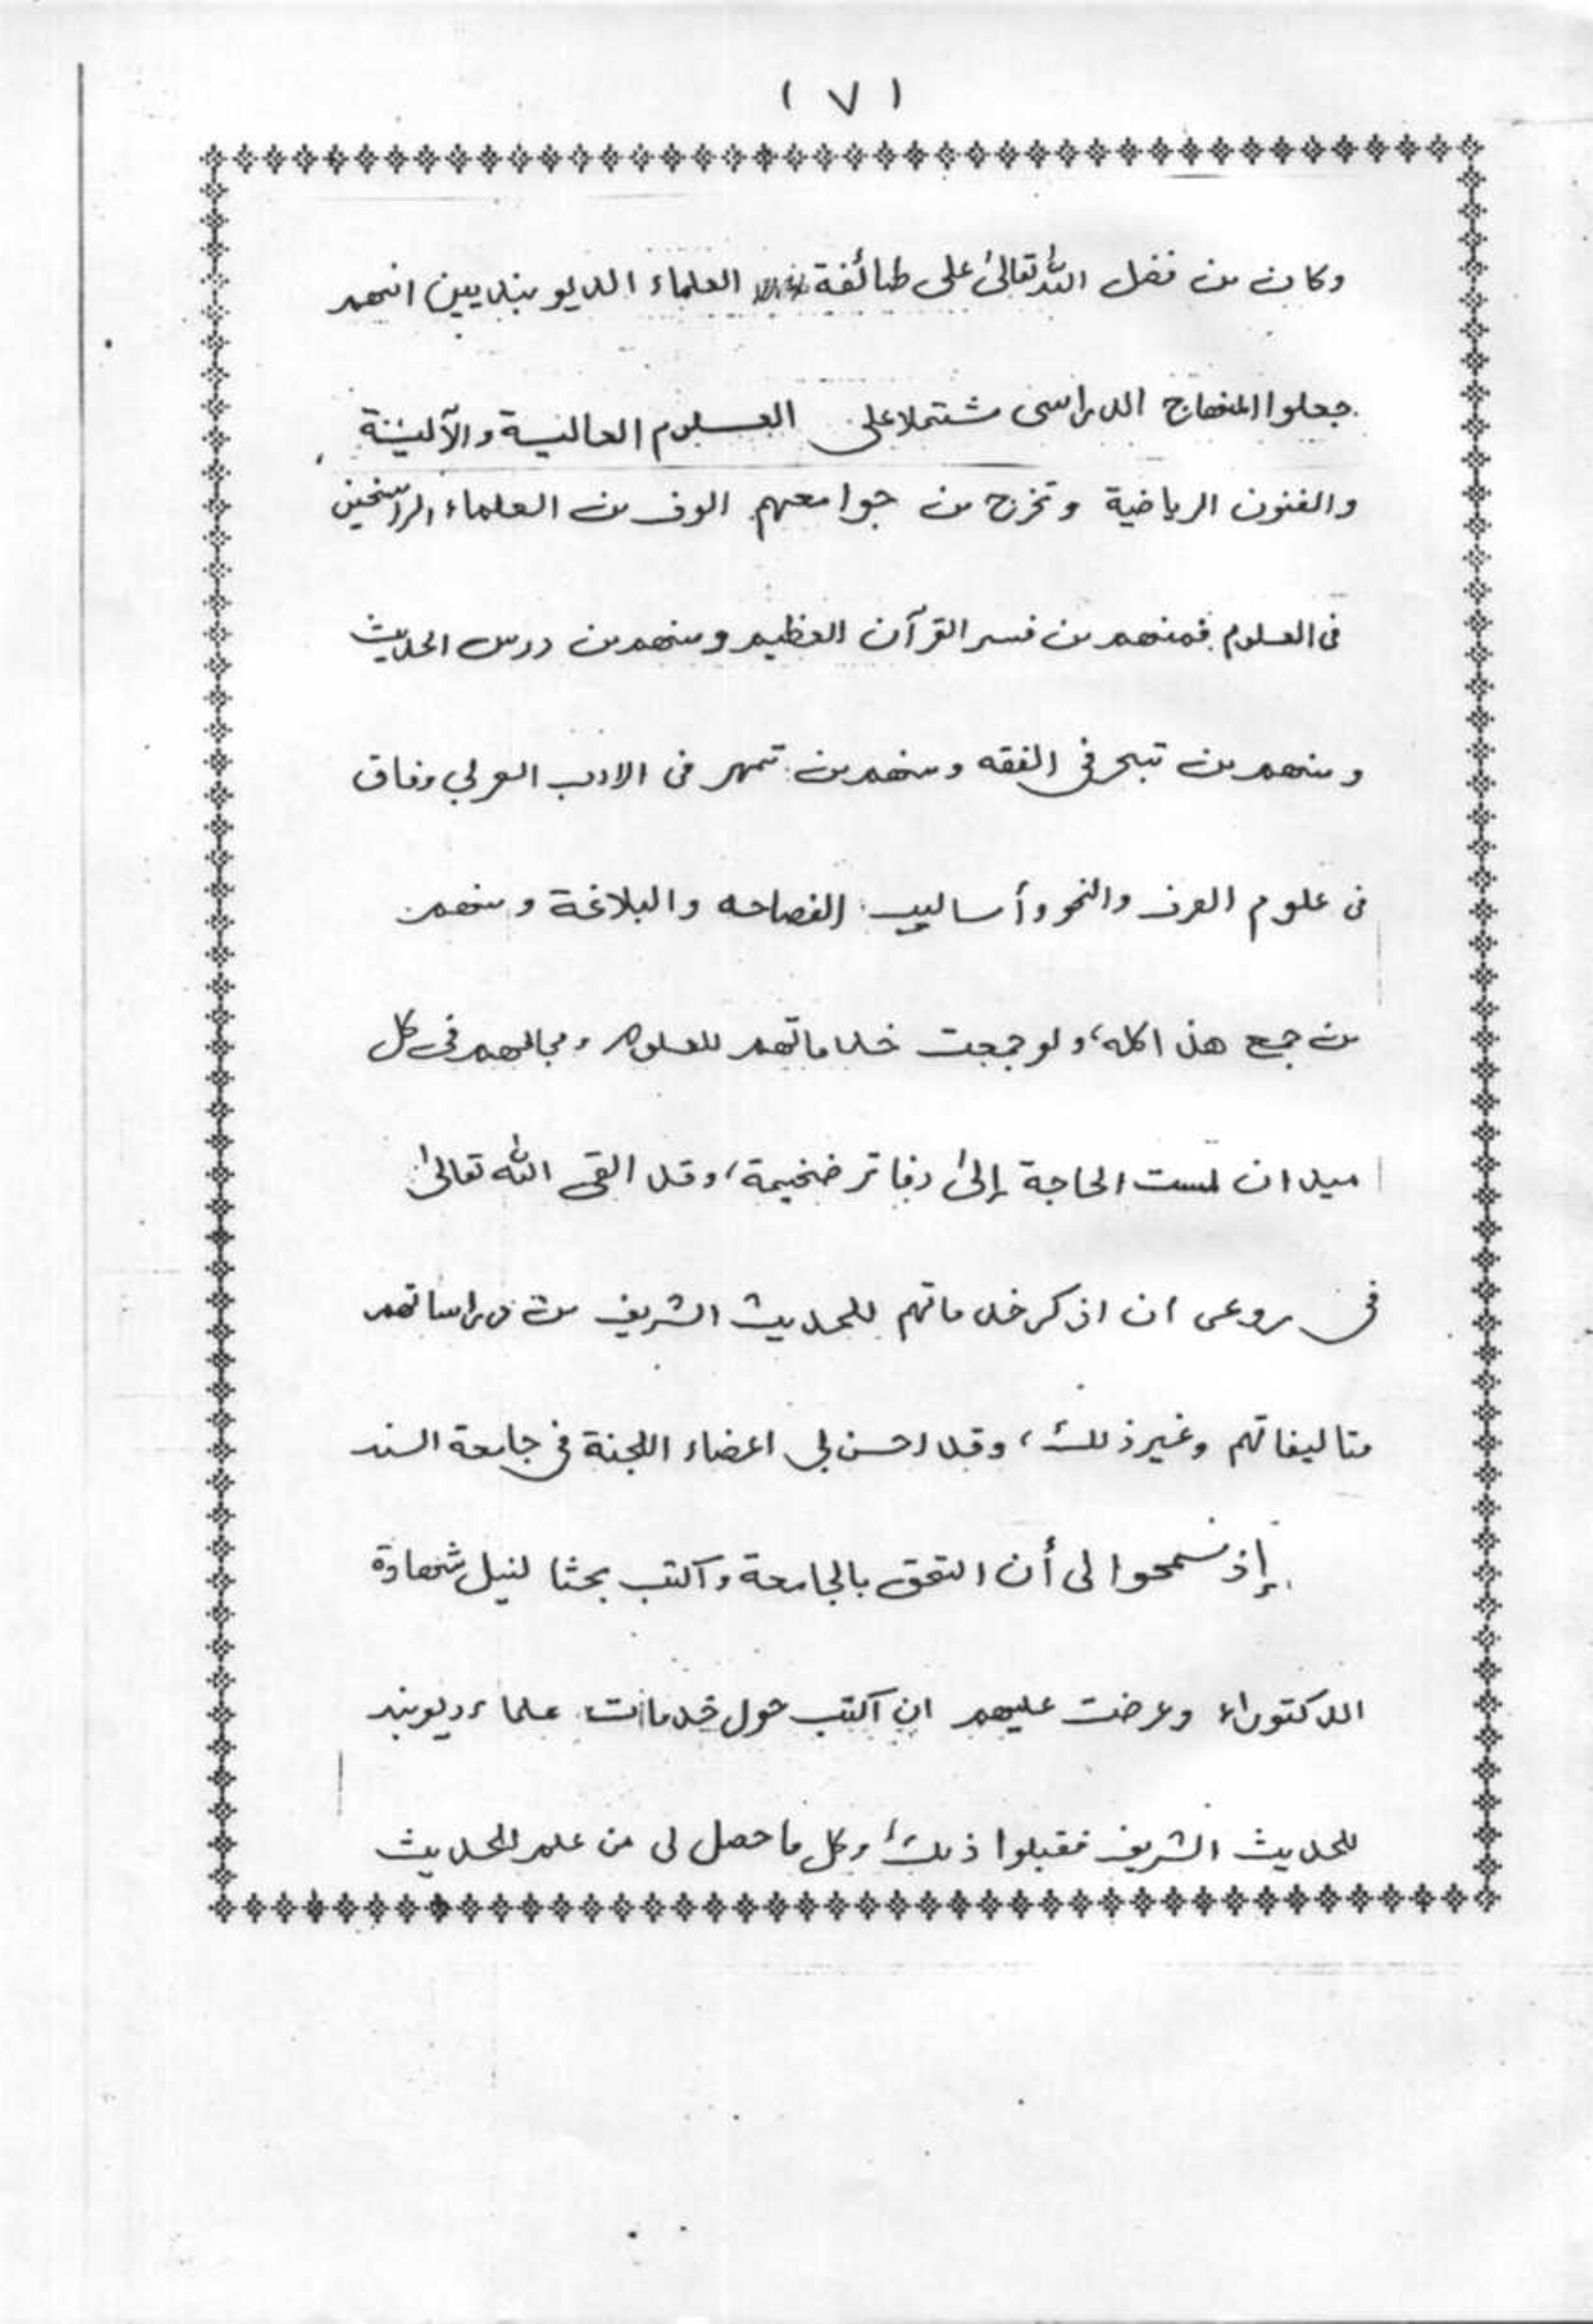 ( ٧ )
وكان من فضل الله تعالىٰ على طائفة العلماء الديوبنديين انهم
جعلوا المنهاج الدراسى مشتملا على العلوم العالية والآلية
والفنون الرياضية وتخرج من جوامعهم الوف من العلماء الراسخين
فى العلوم فمنهم من فسر القرآن العظيم ومنهم من درس الحديث
ومنهم من تبحر فى الفقه ومنهم من تمهر فى الادب العربي وفاق
فى علوم الصرف والنحو وأساليب الفصاحه والبلاغة ومنهم
من جمع هذا كله، ولو جمعت خدماتهم للعلوم ومجالهم فى كل
ميدان لمست الحاجة إلىٰ دفاتر ضخيمة، وقد القى الله تعالىٰ
فى روعى ان اذكر خدماتهم للحديث الشريف من دراساتهم
وتاليفاتهم وغير ذلك، وقد احسن لى اعضاء اللجنة فى جامعة السند
إذ سمحوا لى أن التحق بالجامعة واكتب بحثا لنيل شهادة
الدكتوراء وعرضت عليهم ان اكتب حول خدمات علماء ديوبند
للحديث الشريف فقبلوا ذلك، وكل ما حصل لى من علم للحديث